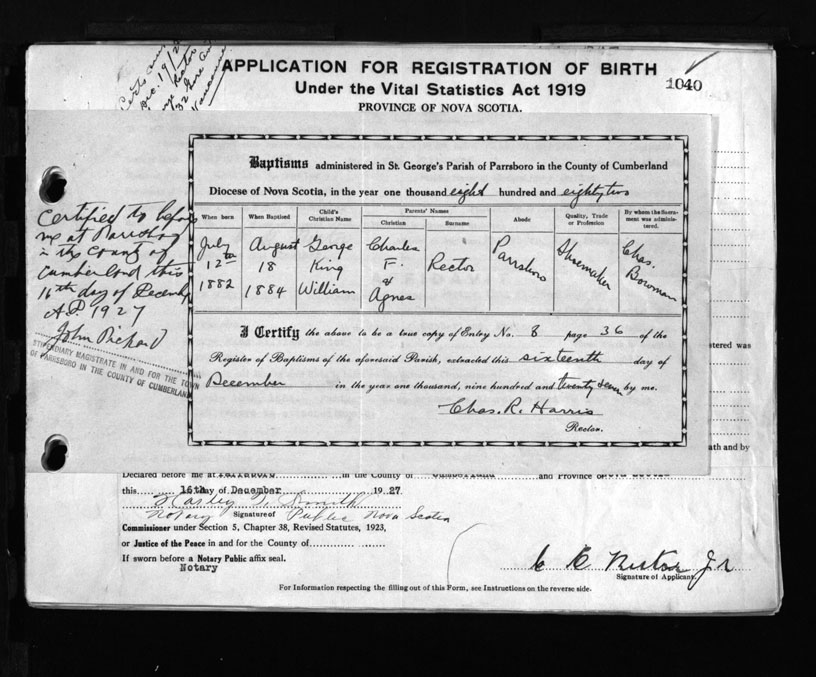 Dec. 19/27
Rector
APPLICATION FOR REGISTRATION OF BIRTH
1040
Under the Vital Statistics Act 1919
PROVINCE OF NOVA SCOTIA.
Baptisms administered in St. George's Parish of Parrsboro in the County of Cumberland
Diocese of Nova Scotia, in the year one thousand eight hundred and eighty two
When born When Baptised Child's Christian Name Parents' Names Christian Surname Abode Quality, Trade or Profession By whom the Sacrament was administered.
July 12th 1882 August 18 1884 George King William Charles F. & Agnes Rector Parrsboro Shoemaker Chas. Bowman
I Certify the above to be a true copy of Entry No. 8 page 36 of the
Register of Baptisms of the aforesaid Parish, extracted this sixteenth day of
December in the year one thousand, nine hundred and twenty seven by me.
Chas. R. Harris
Rector.
Certified to before
me at Parrsboro
in the County of
Cumberland this
16th day of December
A.D 1927
John Rickard
STIPENDIARY MAGISTRATE IN AND FOR THE TOWN
OF PARRSBORO IN THE COUNTY OF CUMBERLAND
stered was
ath and by
Declared before me at Parrsboro in the County of Cumberland and Province of Nova Scotia
this 16th day of December 1927
Smith
Notary Signature of Public Nova Scotia
Commissioner under Section 5, Chapter 38, Revised Statutes, 1923,
or Justice of the Peace in and for the County of
If sworn before a Notary Public affix seal.
Notary
Jr
Signature of Applicant.
For Information respecting the filling out of this Form, see Instructions on the reverse side.